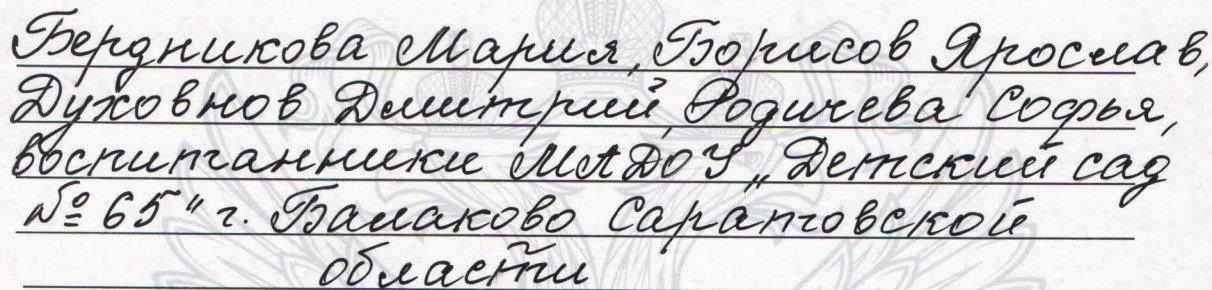 Бердникова Мария, Борисов Ярослав,
Духовнов Дмитрий, Родичева Софья,
воспитанники МАДОУ „Детский сад
№ 65" г. Балаково Саратовской
области